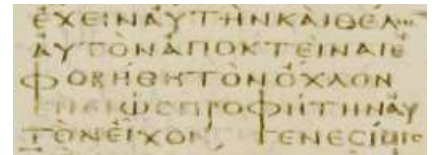 ΕΧΕΙΝΑΥΤΗΝΚΑΙΘΕΛ
ΑΥΤΟΝΑΠΟΚΤΕΙΝΑΙΕ
ΦΟΒΗΘΗΤΟΝΟΧΛΟΝ
ΕΠΕΙΩϹΠΡΟΦΗΤΗΝΑΥ
ΤΟΝΕΙΧΟΝ ΓΕΝΕϹΙΟΙϹ